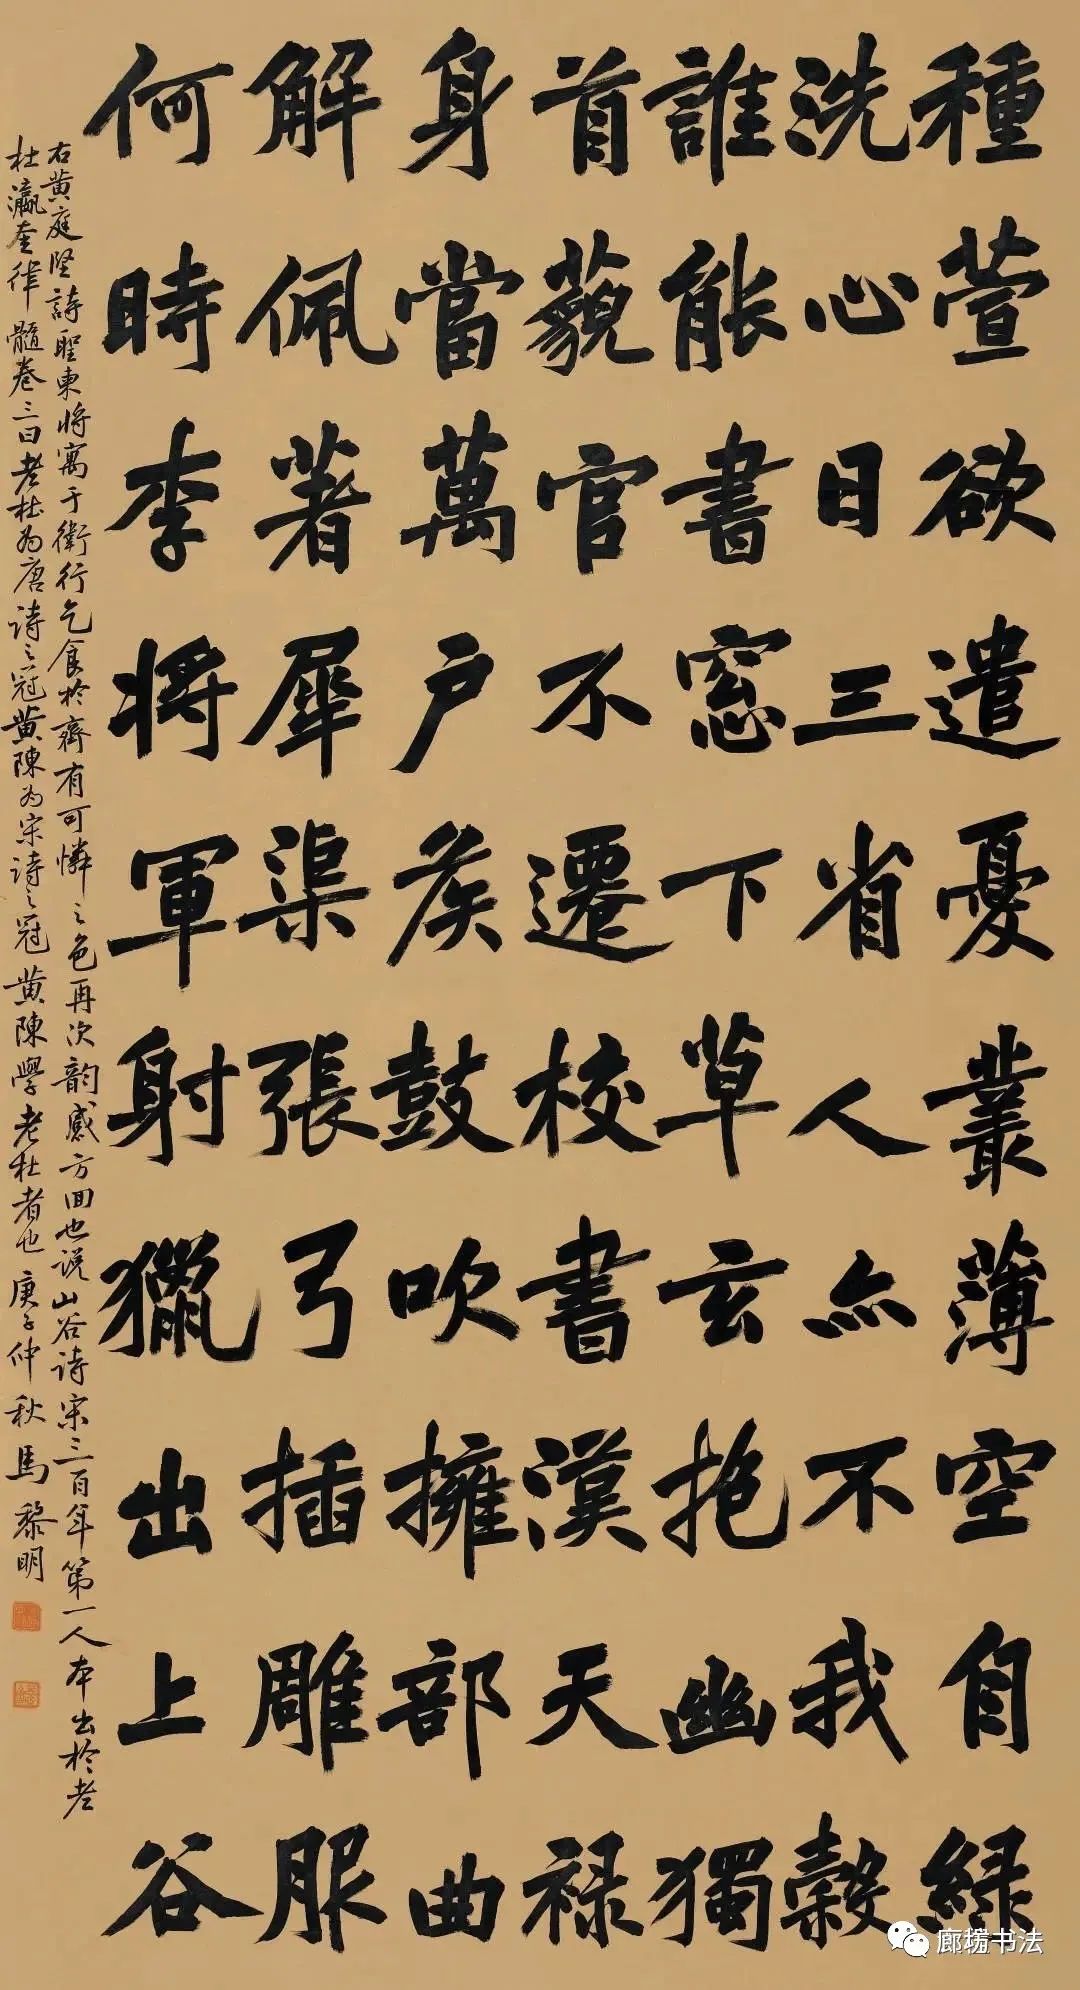 種萱欲遣憂叢薄空自綠
洗心日三省人亦不我穀
誰能書窓下草玄抱幽獨
首藐官不遷校書漢天禄
身當萬户矦鼓吹擁部曲
解佩著犀渠張弓插雕服
何時李將軍射獵出上谷
右黄庭堅詩聖東將寓于衛行乞食於齊有可憐之色再次韵感方回也説山谷诗宋三百年第一人本出於老
杜瀛奎律髓卷三曰老杜为唐诗之冠黄陳为宋诗之冠黄陳學老杜者也庚子仲秋馬黎明
廊瑗书法